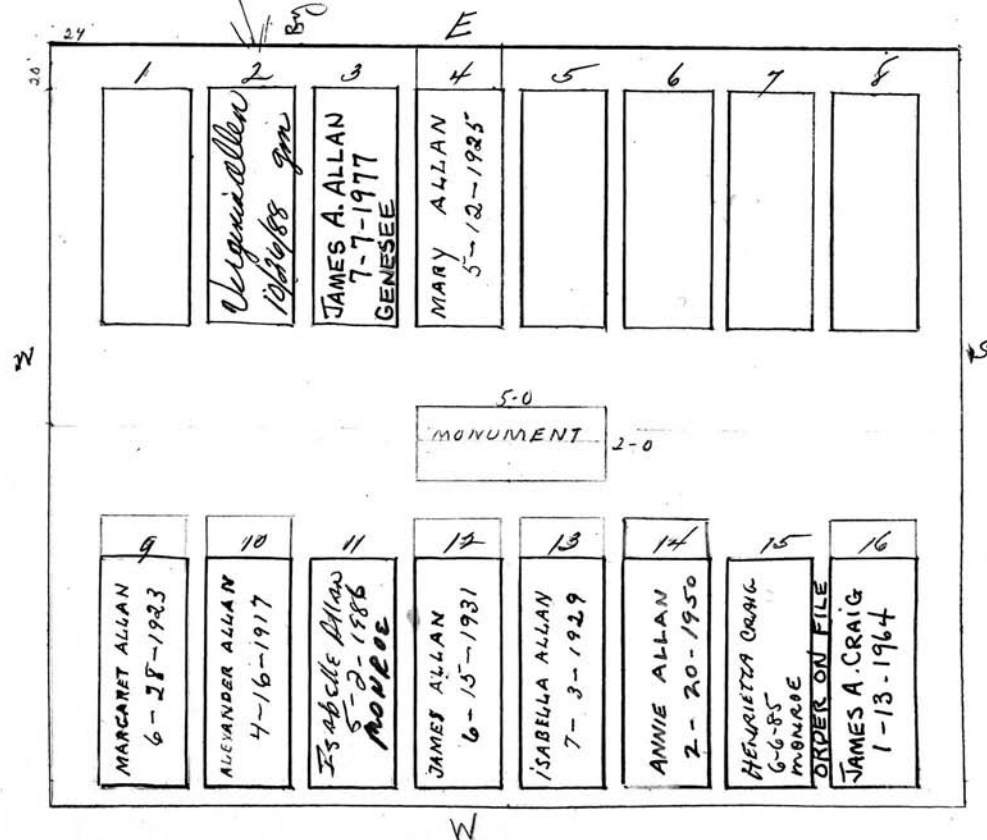 24
20'
E
1
2
3
4
5
6
7
8
Virginia Allen
10/26/88 gm
JAMES A. ALLAN
7-7-1977
GENESEE
MARY ALLAN
5-12-1925
N
S
5-0
MONUMENT
2-0
9
10
11
12
13
14
15
16
MARGARET ALLAN
6-28-1923
ALEXANDER ALLAN
4-16-1917
ISABELLE Allan
5-2-1986
MONROE
JAMES ALLAN
6-15-1931
ISABELLA ALLAN
7-3-1929
ANNIE ALLAN
2-20-1950
HENRIETTA CRAIG
6-6-85
MONROE
ORDER ON FILE
JAMES A. CRAIG
1-13-1964
W